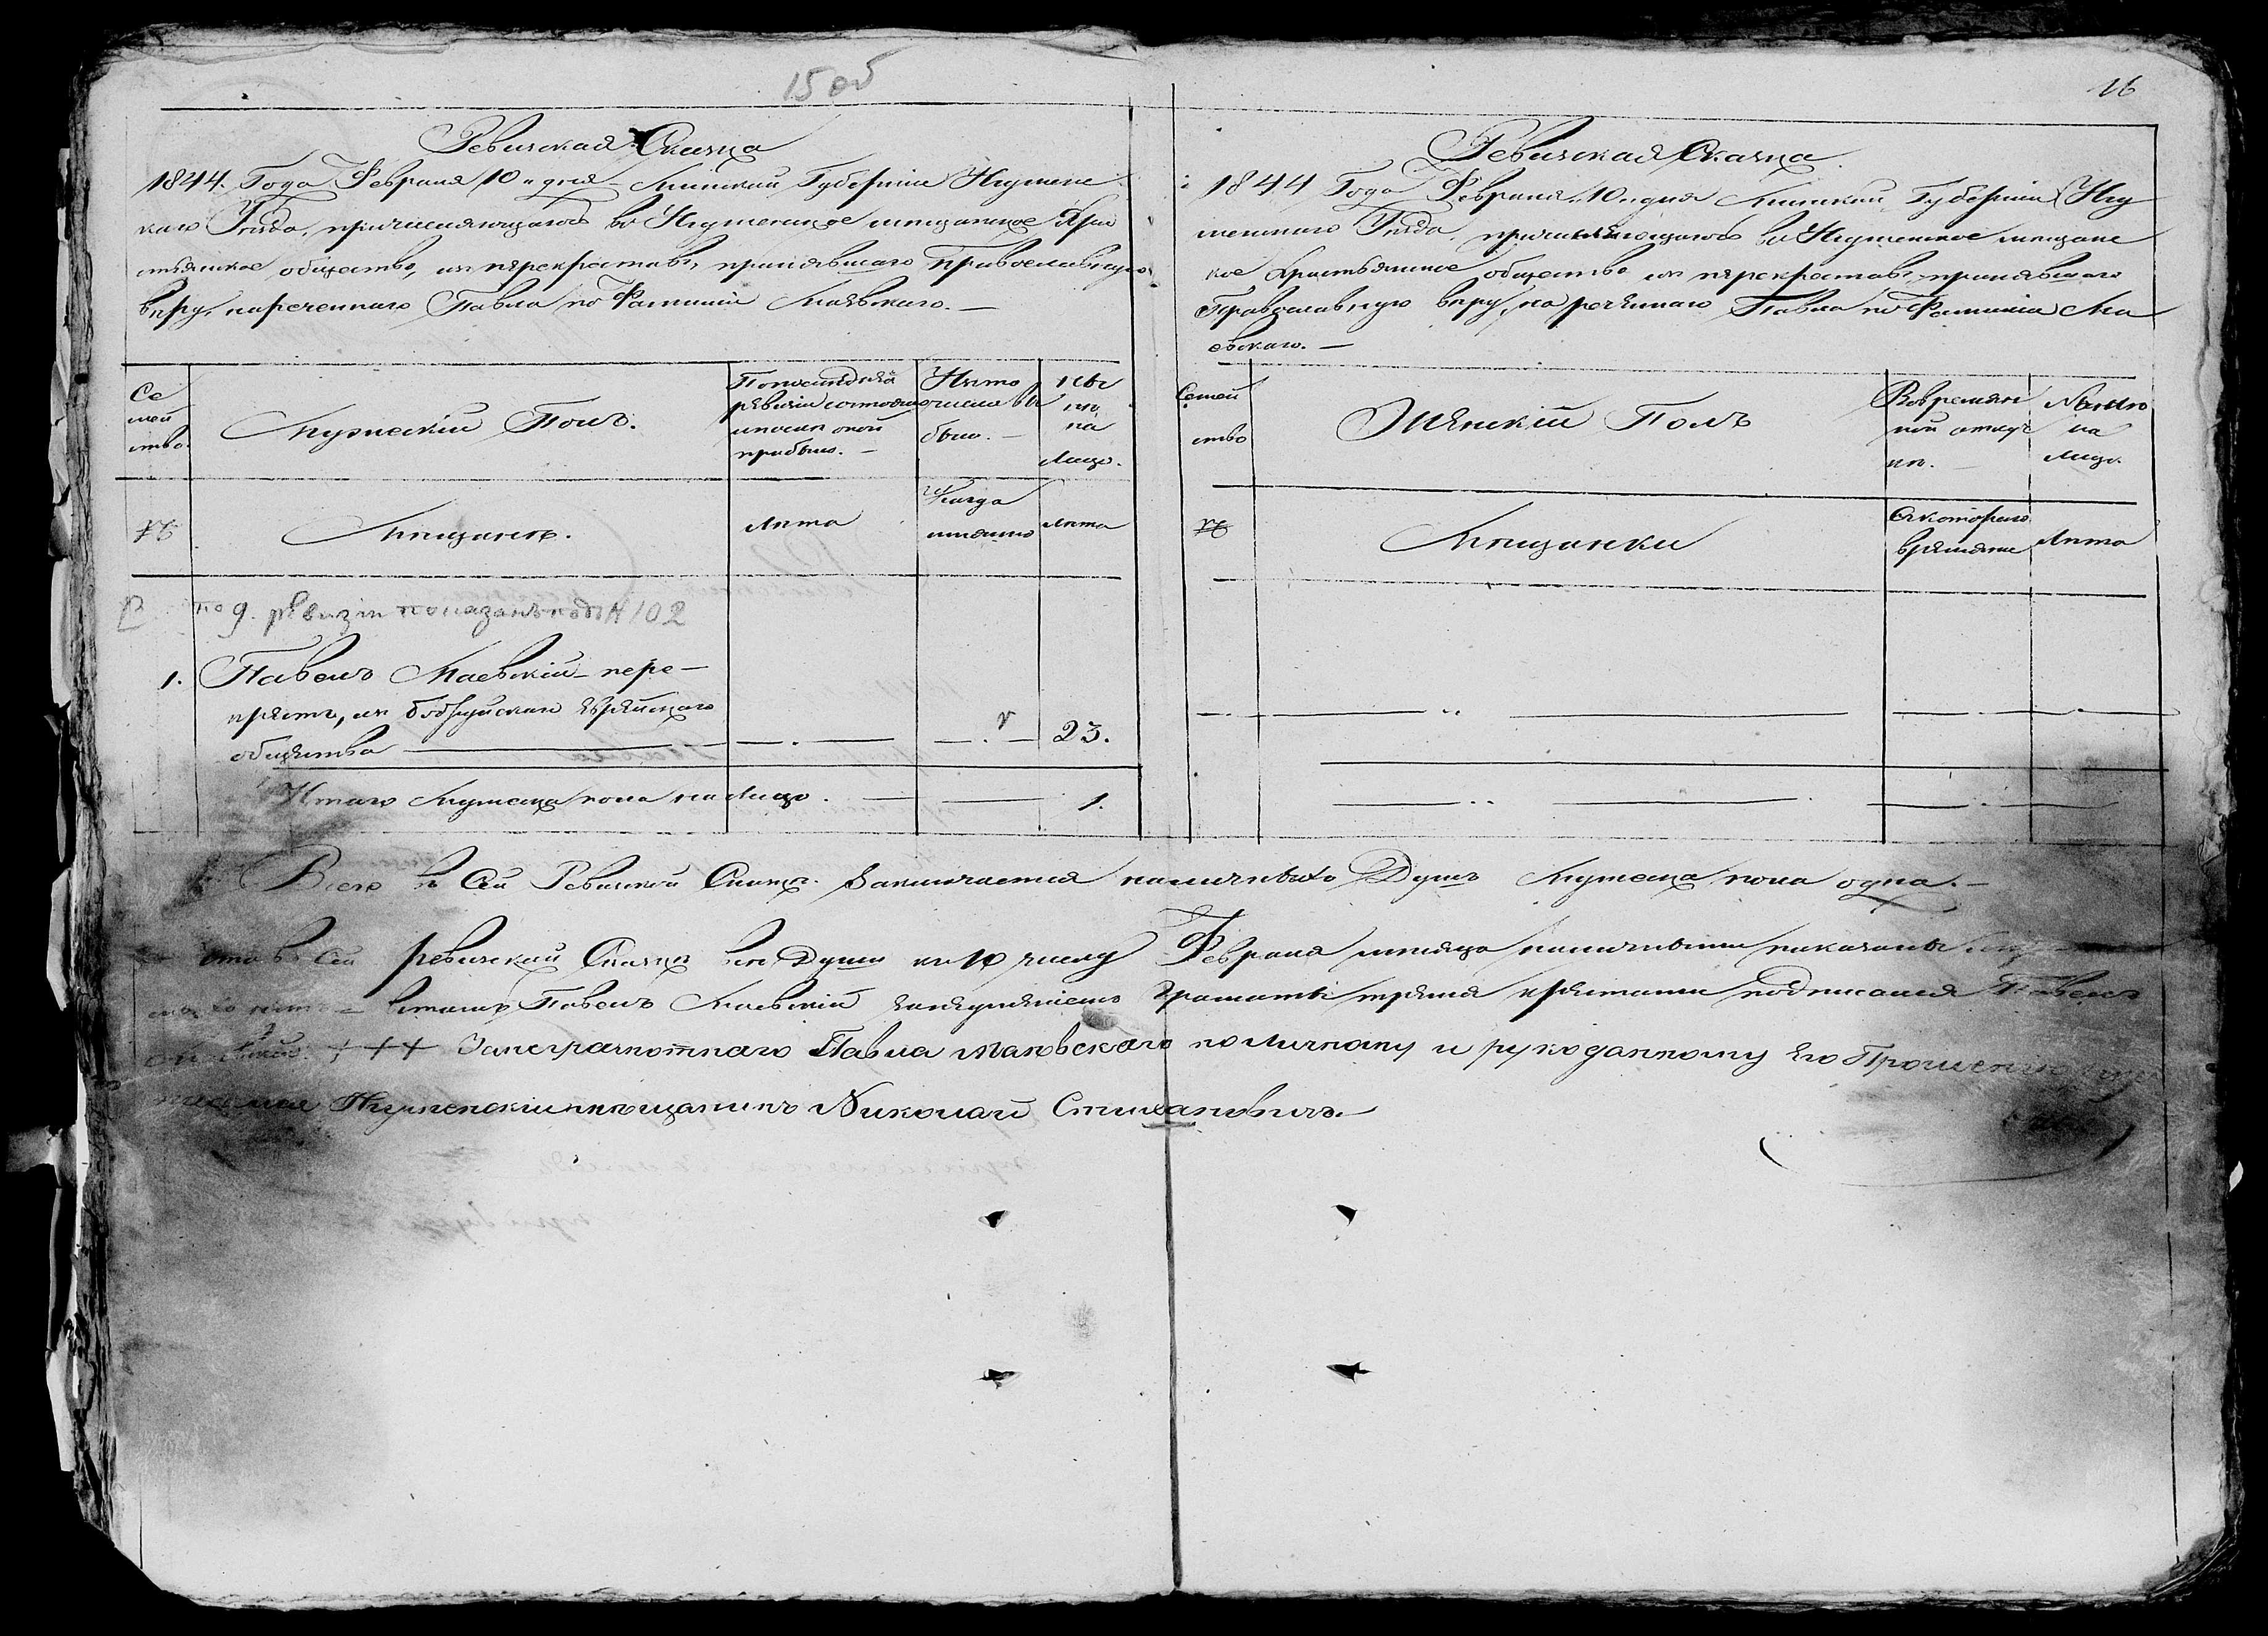 15 об
Ревизская Сказка
1844. Года Февраля 10 дня Минской Губернiи Игумен
скаго Уѣзда, причисляющагося въ Игуменское мещанское Хри
стьянское общество, изъ перекрестовъ, принявшаго Православную
вѣру, нареченнаго Павла по Фамилiи Маевскаго. —
Се
мей
ство.
Мужескiй Полъ.
По последней
ревизiи состояло
и после оной
прибыло. —
Изъ того
числа вы
было. —
Ны
нѣ
на
Лицо.
№
Мещане.
Лета
Когда
имянно
Лета
по 9. ревизiи показанъ под № 102
1. Павелъ Маевскiй — пере —
крестъ, изъ бобруйскаго Еврейскаго
общества — — 23.
Итого Мужеска пола на Лицо. — 1.
16
Ревизская Сказка
1844 Года Февраля 10 дня Минской Губернiи Игу
менскаго Уѣзда, причисляющагося въ Игуменское мещанс
кое Христьянское общество изъ перекрестовъ принявшаго
Православную вѣру, нареченнаго Павла по Фамилiи Ма
евскаго. —
Семей
ство
Женскiй Полъ
Во времян
ной отлуч
ке. —
Ныне
на
Лицо.
№
Мещанки
Съ котораго
времяни
Лета
Всего в Сей Ревизской Сказке заключается наличныхъ Душъ Мужеска пола одна. —
что в Сей ревизской Сказке все Души къ 10 числу Февраля месяца наличными показаны
въ томъ Павелъ Маевскiй за неуменiемъ Граматы тремя крестами подписался Павелъ
+++ За неграмотнаго Павла Маевскаго по личному и рукоданному его Прошенiю
Игуменскiй мещанинъ Николай Стихановичъ. —